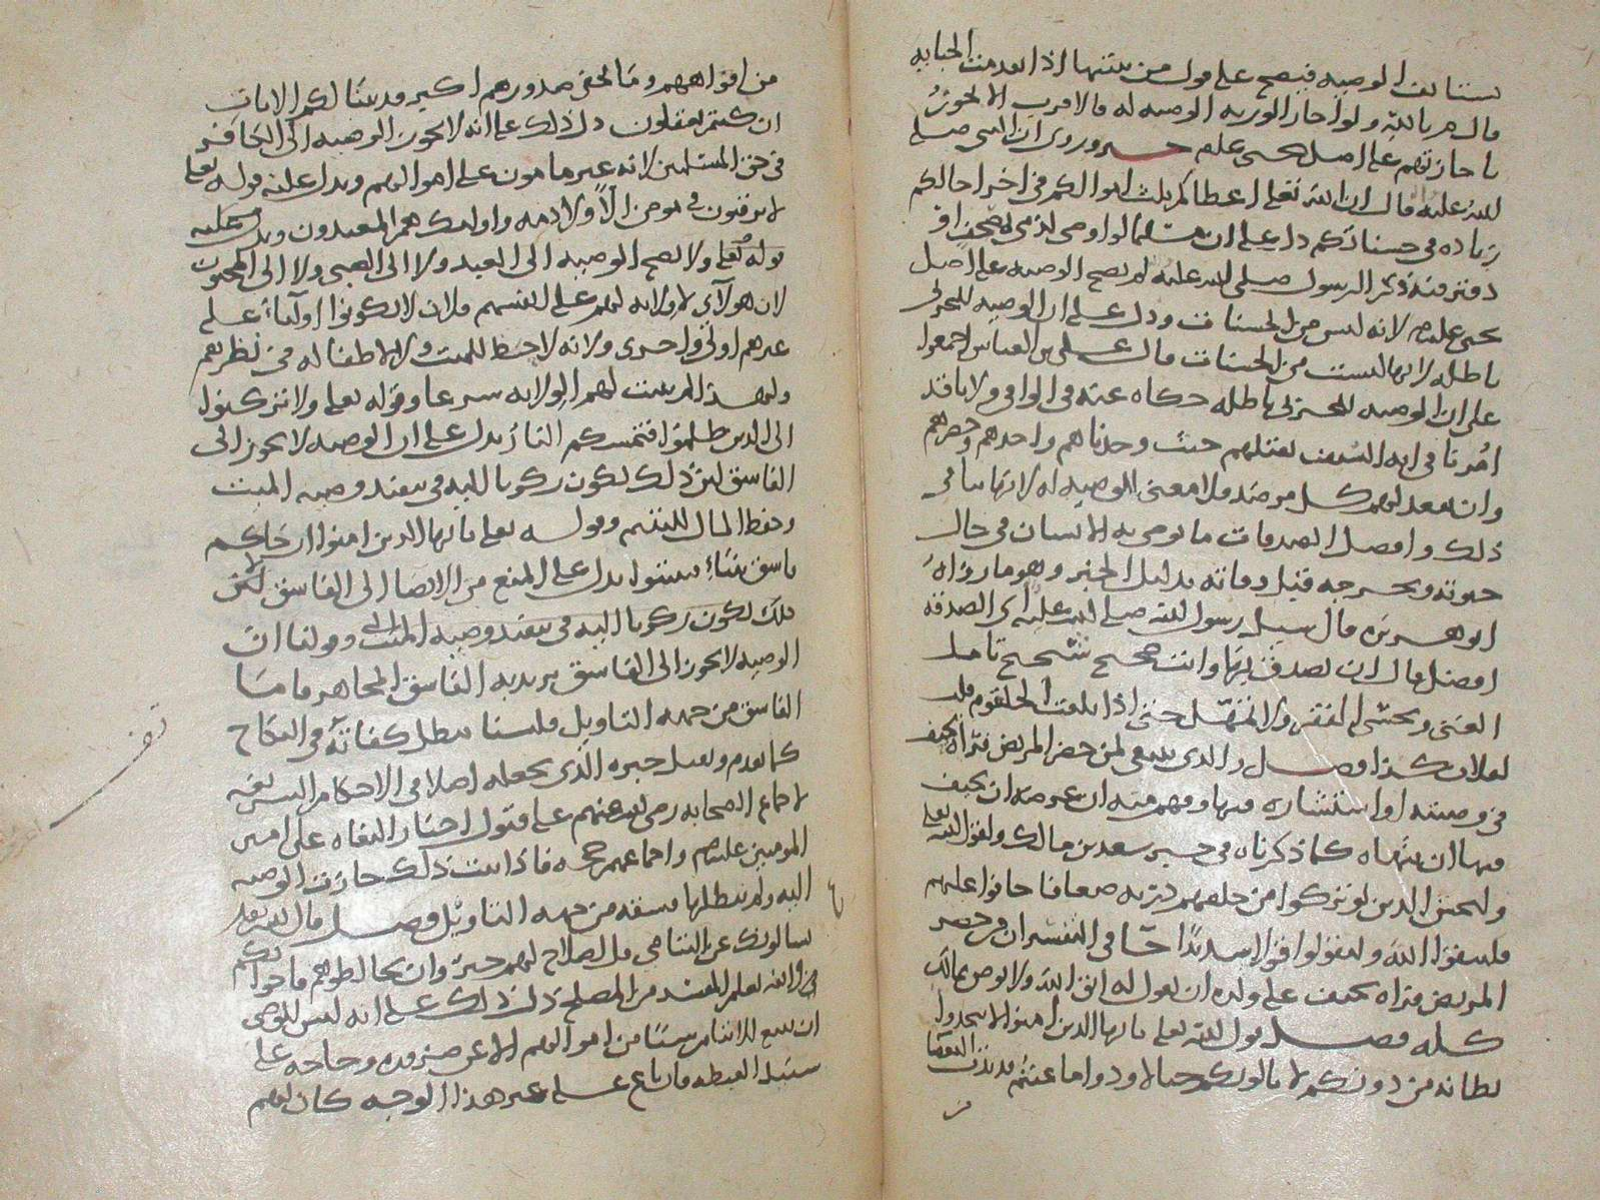 يستانف الوصيه فيصح على قول من يبتنيها اذا بعد منه الجنايه
قال م بالله ولو اجاز الورثه الوصيه له قال الاقرب الا تجوز
باجازتهم على اصل يحيى علم خبر وروي ان النبي صلى
الله عليه قال ان الله تعالى اعطاكم ثلث اموالكم في اخر اجالكم
زياده في حسناتكم دل على ان مسلما لو اوصى لذمي بمصحف او
دفتر فيه ذكر الرسول صلى الله عليه لم تصح الوصيه على اصل
يحيى علم لانه ليس من الحسنات ودل على ان الوصيه للحربي
باطله لانها ليست من الحسنات قال علي بن العباس اجمعوا
على ان الوصيه للحربي باطله حكاه عنه في الوافي ولانا قد
امرنا في ايه السيف بقتلهم حيث وجدناهم واخذهم وحصرهم
وان نقعد لهم كل مرصد فلا معنى للوصيه له لانها تنافي
ذلك وافضل الصدقات ما يوصي به الانسان في حال
حيوته ويخرجه قبل وفاته بدليل الخبر وهو ما رواه
ابو هريره قال سيل رسول الله صلى الله عليه اي الصدقه
افضل قال ان تصدق بها وانت صحيح شحيح تامل
الغنى وتخشى الفقر ولا تمهل حتى اذا بلغت الحلقوم قلت
لفلان كذا فصل والذي ينبغي لمن حضر المريض فراه يحيف
في وصيته او استشاره فيها وفهم منه ان غرضه ان يحيف
فيها ان ينهاه كما ذكرناه في خبر سعد بن مالك ولقول الله تعالى
وليخش الذين لو تركوا من خلفهم ذريه ضعافا خافوا عليهم
فليتقوا الله وليقولوا قولا سديدا جا في التفسير ان من حضر
المريض فراه يحيف على ولده ان يقول له اتق الله ولا توص بمالك
كله فصل قول الله تعالى يا ايها الذين امنوا لا تتخذوا
بطانه من دونكم لا يالونكم خبالا ودوا ما عنتم قد بدت البغضا
من
من افواههم وما تخفي صدورهم اكبر قد بينا لكم الايات
ان كنتم تعقلون دل ذلك على انه لا تجوز الوصيه الى الكافر
في حق المسلمين لانه غير مامون على اموالهم ويدل عليه قوله تعالى
لا يرقبون في مومن الا ولا ذمه واولئك هم المعتدون ويدل عليه
قوله تعالى ولا تصح الوصيه الى العبد ولا الى الصبي ولا الى المجنون
لان هولاي لا ولايه لهم على انفسهم فلان لا يكونوا اوليا على
غيرهم اولى واحرى ولانه لا حظ للميت ولا لاطفاله في نظرهم
ولهذا لم يثبت لهم الولايه شرعا وقوله تعالى ولا تركنوا
الى الذين ظلموا فتمسكم النار يدل على ان الوصيه لا تجوز الى
الفاسق لان ذلك يكون ركونا اليه في تنفيذ وصيه الميت
وحفظ المال لليتيم وقوله تعالى يا ايها الذين امنوا ان جاكم
فاسق بنباء فتبينوا يدل على المنع من الايصا الى الفاسق لان
ذلك يكون ركونا اليه في تنفيذ وصيه الميت وقولنا ان
الوصيه لا تجوز الى الفاسق نريد به الفاسق المجاهر فاما
الفاسق من جهه التاويل فلسنا نبطل كفاته في النكاح
كما تقدم ونقبل خبره الذي يجعله اصلا في الاحكام الشرعيه
لاجماع الصحابه رضي الله عنهم على قبول اخبار البغاه على امير
المومنين عليلم واجماعهم حجه فاذا ثبت ذلك جازت الوصيه
اليه ولم يبطلها فسقه من جهه التاويل فصل قال الله تعالى
يسالونك عن اليتامى قل اصلاح لهم خير وان تخالطوهم فاخوانكم
في والله يعلم المفسد من المصلح دل ذلك على انه ليس للوصي
ان يبيع للايتام شيا من اموالهم الا عن ضروره وحاجه على
سبيل الغبطه فان باع على غير هذا الوجه كان لهم